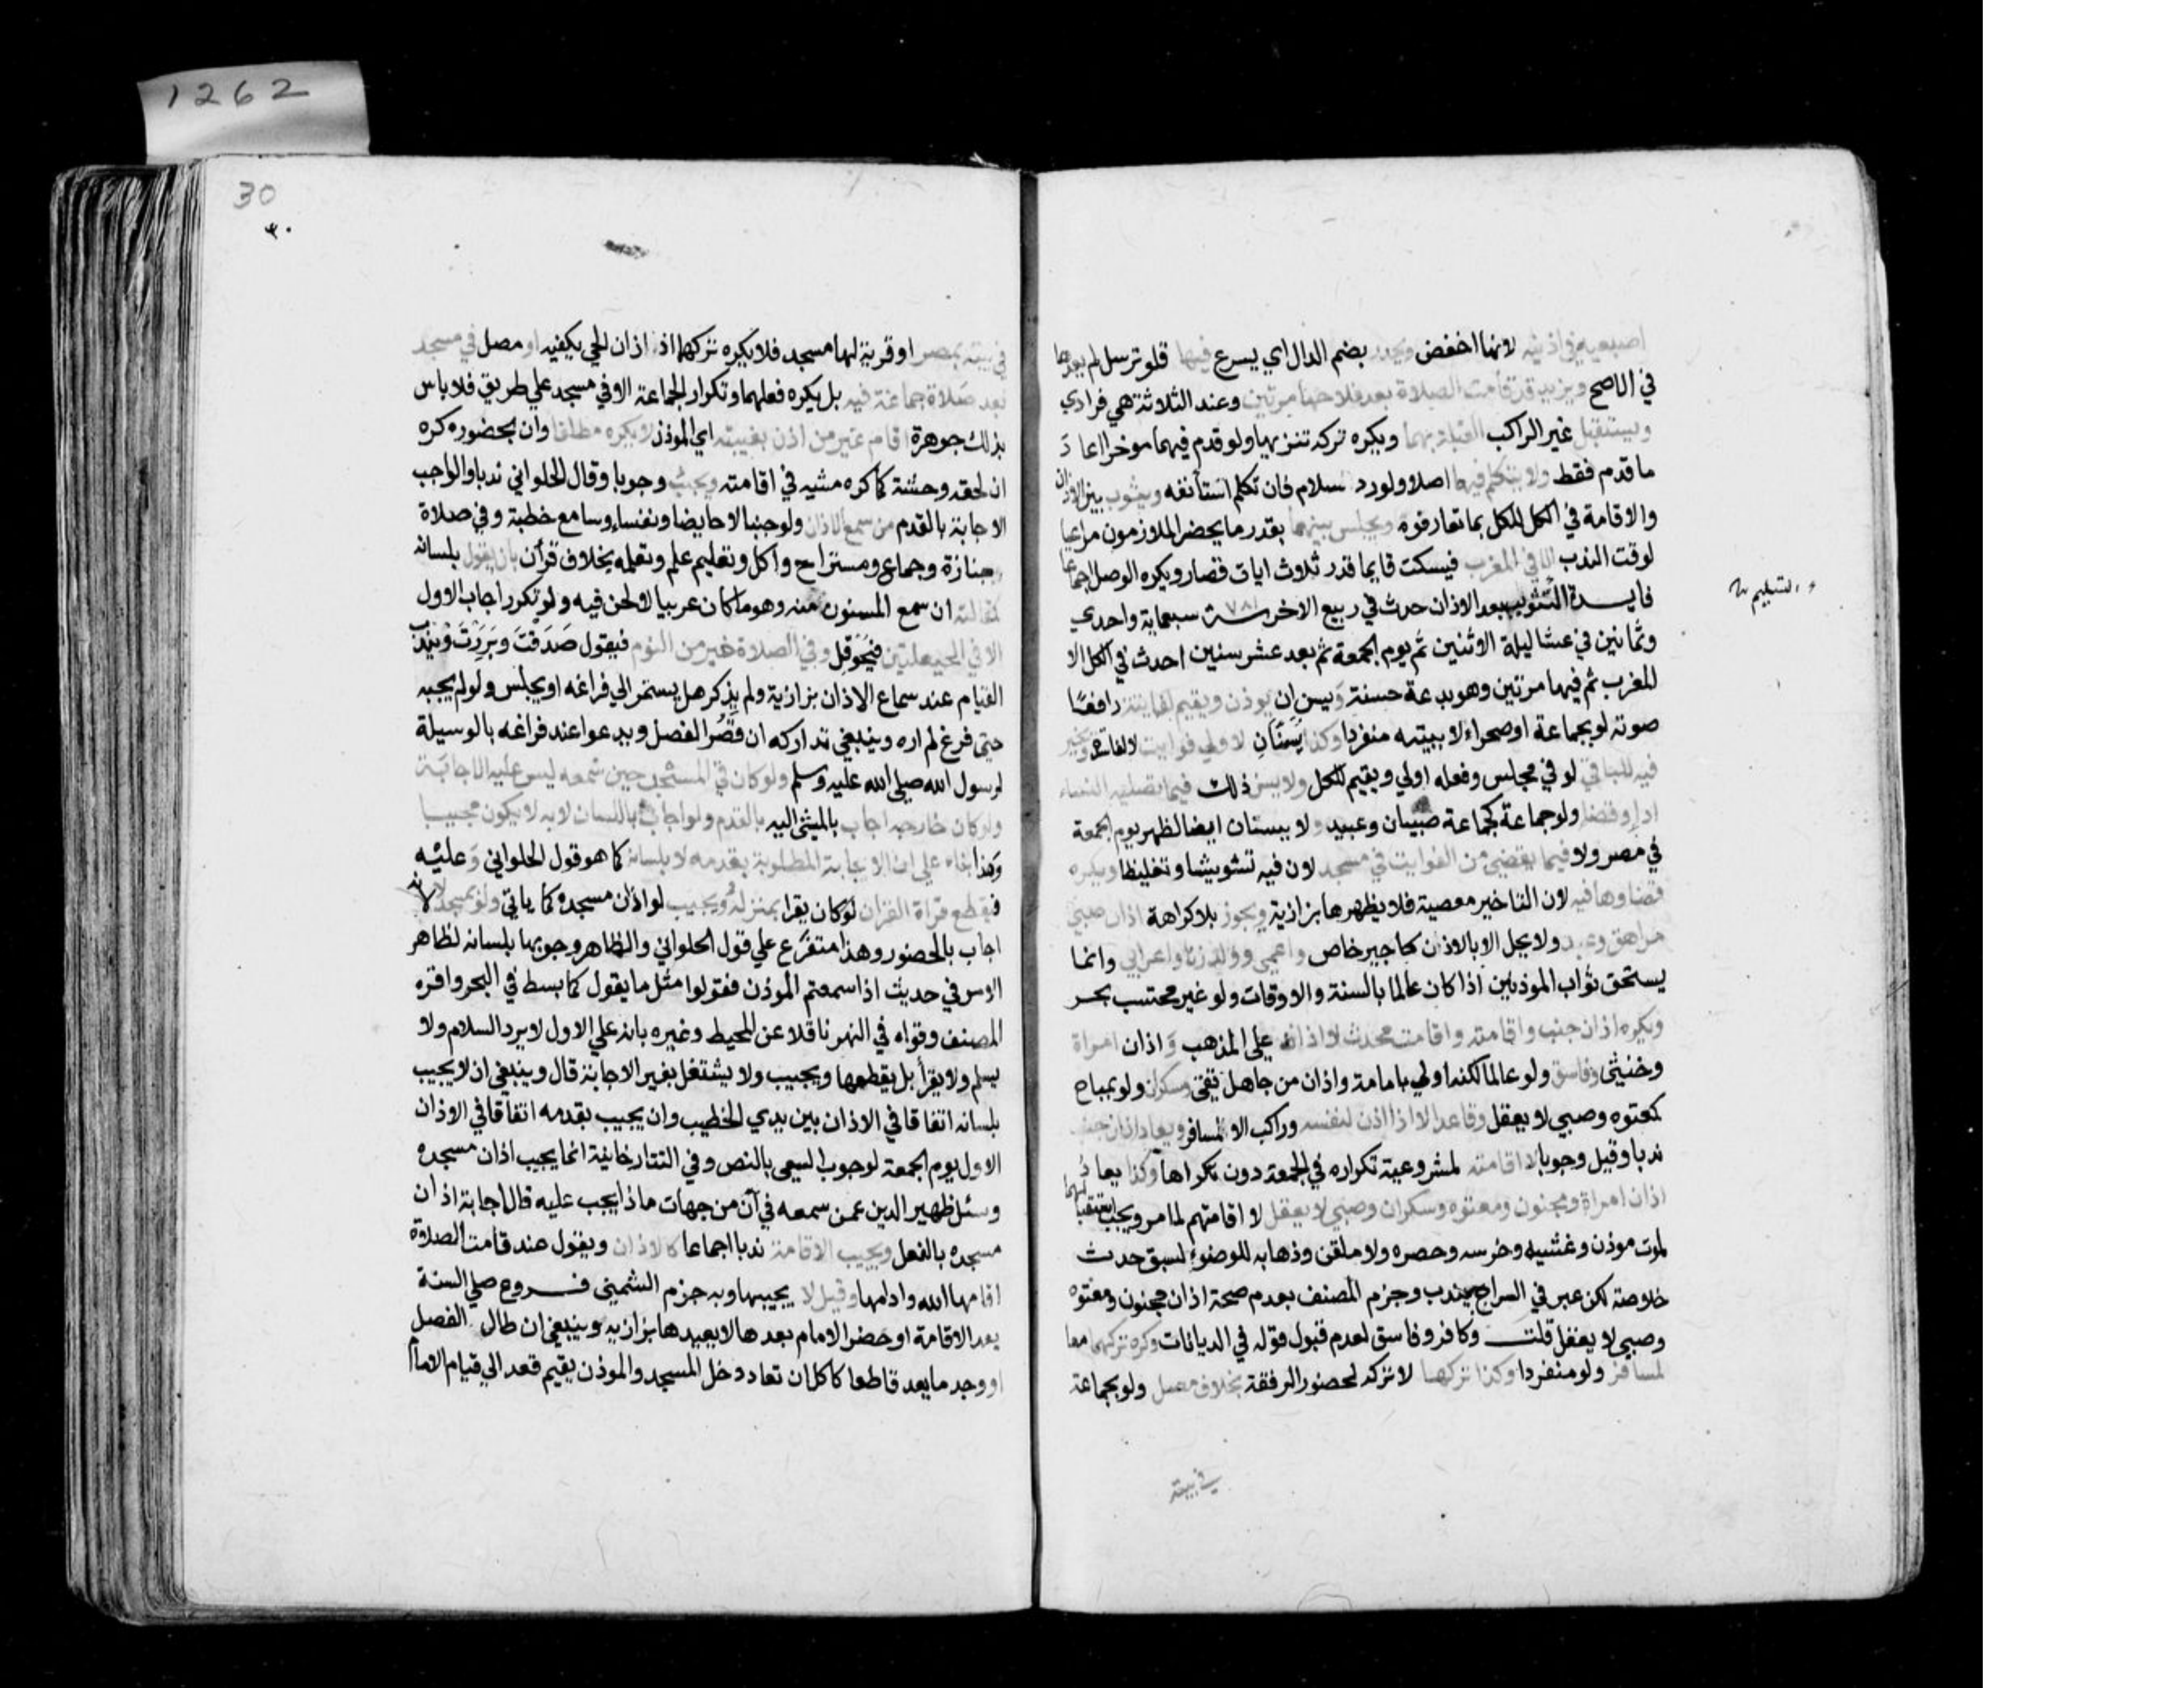 اصبعيه في اذنيه لانها اخفض ويحدر بضم الدال اي يسرع فيها فلو ترسل لم يعدها
في الاصح ويزيد قد قامت الصلاة بعد فلاحها مرتين وعند الثلاثة هي فرادي
ويستقبل غير الراكب القبلة بهما ويكره تركه تنزيها ولو قدم فيهما موخرا اعاد
ما قدم فقط ولا يتكلم فيهما اصلا ولو رد سلام فان تكلم استأنفه ويثوب بين الاذان
والاقامة في الكل للكل بما تعارفوه ويجلس بينهما بقدر ما يحضر الملازمون مراعيا
لوقت الندب الا في المغرب فيسكت قايما قدر ثلاث ايات قصار ويكره الوصل اجماعا
فايدة التثويب بعد الاذان حدث في ربيع الاخر سنة ٧٨١ سبعماية واحدي
و التسليم صح
وثمانين في عشا ليلة الاثنين ثم يوم الجمعة ثم بعد عشر سنين احدث في الكل الا
المغرب ثم فيها مرتين وهو بدعة حسنة ويسن ان يوذن ويقيم لفايتة رافعا
صوته لو بجماعة او صحراء لا ببيته منفردا وكذا يسنان لاولي فوايت لا لفاسدة ويخير
فيه للباقي لو في مجلس وفعله اولي ويقيم للكل ولا يسن ذلك فيما تصليه النساء
اداء وقضا ولو جماعة كجماعة صبيان وعبيد ولا يسنان ايضا لظهر يوم الجمعة
في مصر ولا فيما يقضي من الفوايت في مسجد لان فيه تشويشا وتغليظا ويكره
قضاوها فيه لان التاخير معصية فلا يظهرها بزازية ويجوز بلا كراهة اذان صبي
مراهق وعبد ولا يحل الا بالاذن كاجير خاص واعمي وولد زنا واعرابي وانما
يستحق ثواب الموذنين اذا كان عالما بالسنة والاوقات ولو غير محتسب بحر
ويكره اذان جنب واقامته واقامت محدث لا اذانه علي المذهب و اذان امراة
وخنثي وفاسق ولو عالما لكنه اولي بامامة واذان من جاهل تقي وسكران ولو بمباح
كمعتوه وصبي لا يعقل وقاعد الا اذا اذن لنفسه وراكب الا لمسافر ويعاد اذان جنب
ندبا وقيل وجوبا لا اقامته لمشروعية تكراره في الجمعة دون تكرارها وكذا يعاد
اذان امراة ومجنون ومعتوه وسكران وصبي لا يعقل لا اقامتهم لما مر ويجب استقبالهما
لموت موذن وغشيه وخرسه وحصره ولا ملقن وذهابه للوضوء لسبق حدث
خلاصة لكن عبر في السراج بيندب وجزم المصنف بعدم صحة اذان مجنون ومعتوه
وصبي لا يعقل قلت وكافر وفاسق لعدم قبول قوله في الديانات وكره تركهما معا
لمسافر ولو منفردا وكذا تركها لا تركه لحضور الرفقة بخلاف مصل ولو بجماعة
في بيته
1262
30
٣٠
في بيته بمصر او قرية لها مسجد فلا يكره تركهما اذ اذان الحي يكفيه او مصل في مسجد
بعد صلاة جماعة فيه بل يكره فعلهما وتكرار الجماعة الا في مسجد علي طريق فلا باس
بذلك جوهرة اقام غير من اذن بغيبته اي الموذن لا يكره مطلقا وان بحضوره كره
ان لحقه وحشة كما كره مشيه في اقامته ويجيب وجوبا وقال الحلواني ندبا والواجب
الاجابة بالقدم من سمع الاذان ولو جنبا لا حايضا ونفساء وسامع خطبة وفي صلاة
جنازة وجماع ومستراح واكل وتعليم علم وتعلمه بخلاف قرأن بان يقول بلسانه
كمقالته ان سمع المسنون منه وهو ما كان عربيا لا لحن فيه ولو تكرر اجاب الاول
الا في الحيعلتين فيحوقل وفي الصلاة خير من النوم فيقول صدقت وبررت ويندب
القيام عند سماع الاذان بزازية ولم يذكر هل يستمر الي فراغه او يجلس ولو لم يجبه
حتى فرغ لم اره وينبغي تداركه ان قصر الفصل ويدعوا عند فراغه بالوسيلة
لرسول الله صلى الله عليه وسلم ولو كان في المسجد حين سمعه ليس عليه الاجابة
ولو كان خارجه اجاب بالمشي اليه بالقدم ولو اجاب باللسان لا به لا يكون مجيبا
وهذا بناء علي ان الاجابة المطلوبة بقدمه لا بلسانه كما هو قول الحلواني وعليه
فيقطع قراة القران لو كان يقرا بمنزله ويجيب لو اذان مسجده كما ياتي ولو بمسجد لا لانه
اجاب بالحضور وهذا متفرع علي قول الحلواني والظاهر وجوبها بلسانه لظاهر
الامر في حديث اذا سمعتم الموذن فقولوا مثل ما يقول كما بسط في البحر واقره
المصنف وقواه في النهر ناقلا عن المحيط وغيره بانه علي الاول لا يرد السلام ولا
يسلم ولا يقرأ بل يقطعها ويجيب ولا يشتغل بغير الاجابة قال وينبغي ان لا يجيب
بلسانه اتفاقا في الاذان بين يدي الخطيب وان يجيب بقدمه اتفاقا في الاذان
الاول يوم الجمعة لوجوب السعي بالنص وفي التتارخانية انما يجيب اذان مسجده
وسئل ظهير الدين عمن سمعه في آن من جهات ماذا يجب عليه قال اجابة اذان
مسجده بالفعل ويجيب الاقامة ندبا اجماعا كالاذان ويقول عند قد قامت الصلاة
اقامها الله وادامها وقيل لا يجيبها وبه جزم الشمني فروع صلي السنة
بعد الاقامة او حضر الامام بعدها لا يعيدها بزازيه وينبغي ان طال الفصل
او وجد ما يعد قاطعا كاكل ان تعاد دخل المسجد والموذن يقيم قعد الي قيام الامام